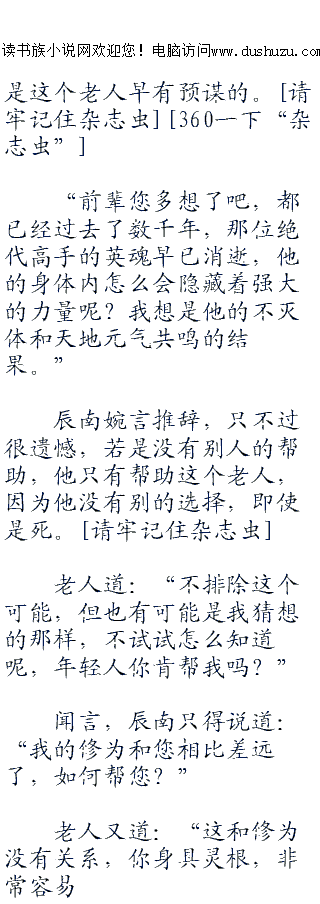 读书族小说网欢迎您！电脑访问www.dushuzu.com
是这个老人早有预谋的。[请
牢记住杂志虫][360一下“杂
志虫”]
“前辈您多想了吧，都
已经过去了数千年，那位绝
代高手的英魂早已消逝，他
的身体内怎么会隐藏着强大
的力量呢？我想是他的不灭
体和天地元气共鸣的结
果。”
辰南婉言推辞，只不过
很遗憾，若是没有别人的帮
助，他只有帮助这个老人，
因为他没有别的选择，即使
是死。[请牢记住杂志虫]
老人道：“不排除这个
可能，但也有可能是我猜想
的那样，不试试怎么知道
呢，年轻人你肯帮我吗？”
闻言，辰南只得说道：
“我的修为和您相比差远
了，如何帮您？”
老人又道：“这和修为
没有关系，你身具灵根，非
常容易